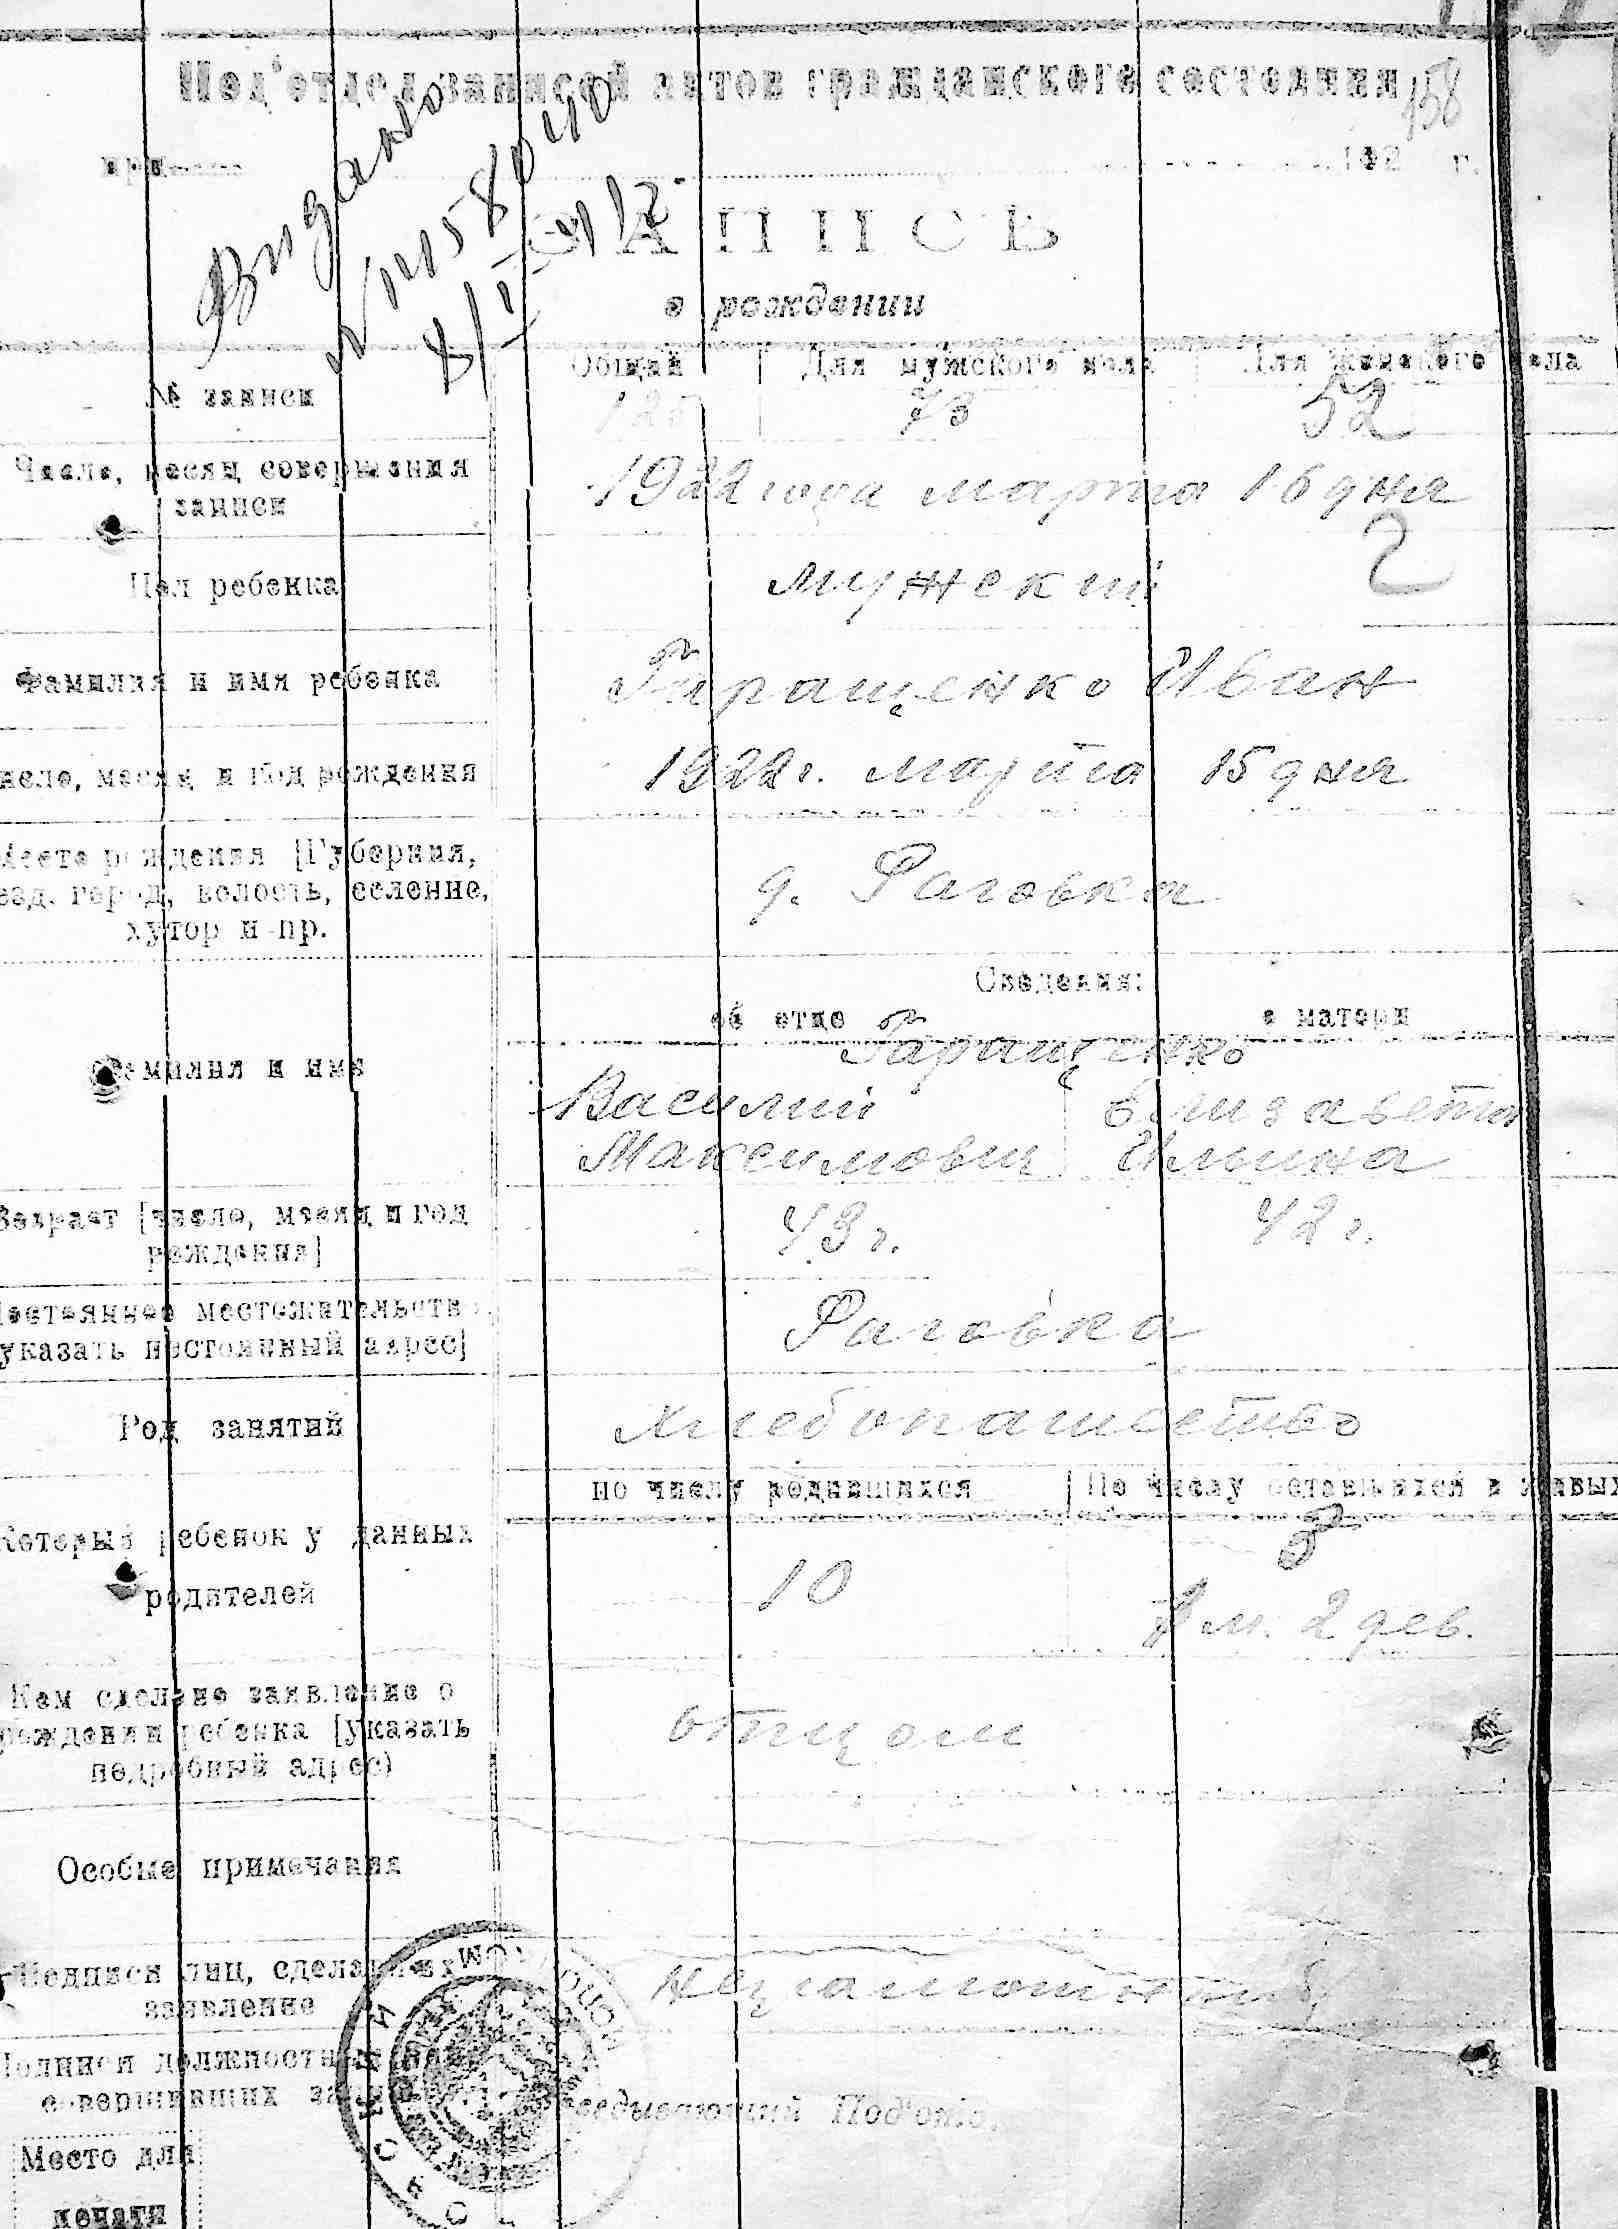 158
Под'отдел записей актов гражданского состояния
при 192 г.
Видано
N 1158040
ЗАПИСЬ
о рождении
Общий Для мужского пола Для женского пола
№ записи 125 73 52
Число, месяц совершения
записи
1922 года марта 16 дня
2
Пол ребенка мужеский
Фамилия и имя ребенка Гаращенко Иван
число, месяц и год рождения 1922 г. марта 15 дня
Место рождения [Губерния,
уезд, город, волость, селение,
хутор и пр.
д. Раговка
Сведения:
об отце о матери
Гаращенко
Фамилия и имя
Василий Елизавета
Максимович Ильина
Возраст [число, месяц и год
рождения]
43 г. 42 г.
Постоянное местожительство
указать постоянный адрес]
Раговка
Род занятий хлебопашество
по числу родившихся По числу оставшихся в живых
Который ребенок у данных
родителей
10 3
1 м. 2 дев.
Кем сделано заявление о
рождении ребенка [указать
подробный адрес)
отцом
Особые примечания
Подписи лиц, сделавших
заявление
неграмотный
Подписи должностных лиц
совершивших запись
Заведывающий Под'отд.
Место для
печати